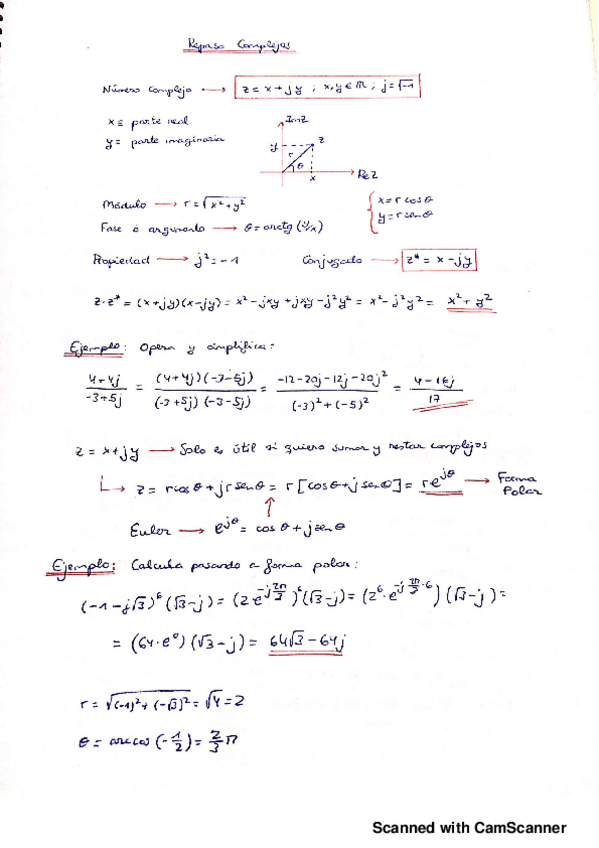 Repaso Complejos
Número complejo → z = x + jy ; x,y ∈ ℝ ; j = √-1
x ≡ parte real
y = parte imaginaria
Im z
y r z
θ
x Re z
Módulo → r = √(x² + y²)
x = r cos θ
y = r sen θ
Fase o argumento → θ = arctg (y/x)
Propiedad → j² = -1 Conjugado → z* = x - jy
z · z* = (x + jy)(x - jy) = x² - jxy + jxy - j²y² = x² - j²y² = x² + y²
Ejemplo: Opera y simplifica:
(4+4j)/(-3+5j) = (4+4j)(-3-5j)/(-3+5j)(-3-5j) = (-12-20j-12j-20j²)/((-3)²+(-5)²) = (4-16j)/17
z = x + jy → Solo es útil si quiero sumar y restar complejos
↳ z = r cos θ + j r sen θ = r [cos θ + j sen θ] = r e^(jθ) → Forma Polar
Euler → e^(jθ) = cos θ + j sen θ
Ejemplo: Calcula pasando a forma polar:
(-1 - j√3)⁶ (√3 - j) = (2 e^(-j 2π/3))⁶ (√3 - j) = (2⁶ · e^(-j 2π/3 · 6)) (√3 - j) =
= (64 · e⁰) (√3 - j) = 64√3 - 64j
r = √((-1)² + (-√3)²) = √4 = 2
θ = arccos (-1/2) = 2/3 π
Scanned with CamScanner